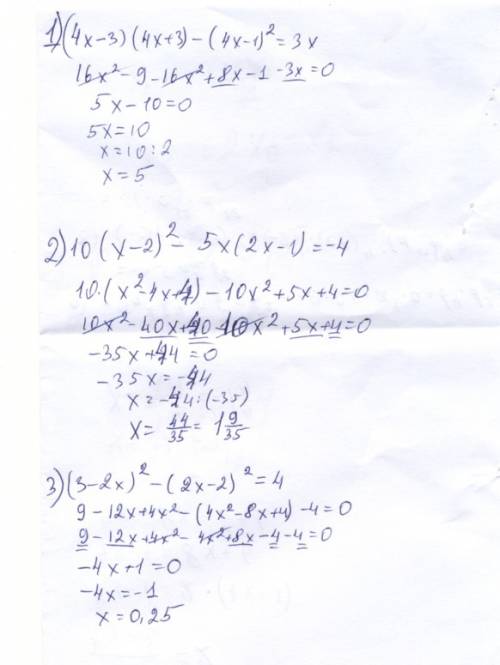 1) (4x-3)(4x+3)-(4x-1)²=3x
16x²-9-16x²+8x-1-3x=0
5x-10=0
5x=10
x=10:2
x=5
2) 10(x-2)²-5x(2x-1)=-4
10·(x²-4x+4)-10x²+5x+4=0
10x²-40x+40-10x²+5x+4=0
-35x+44=0
-35x=-44
x=-44:(-35)
x=44/35=1 9/35
3) (3-2x)²-(2x-2)²=4
9-12x+4x²-(4x²-8x+4)-4=0
9-12x+4x²-4x²+8x-4-4=0
-4x+1=0
-4x=-1
x=0,25